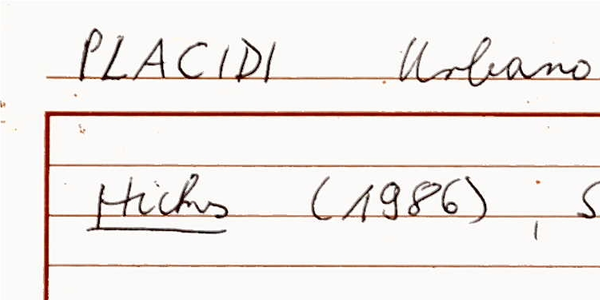 PLACIDI Urbano
Hicks (1986) ; S